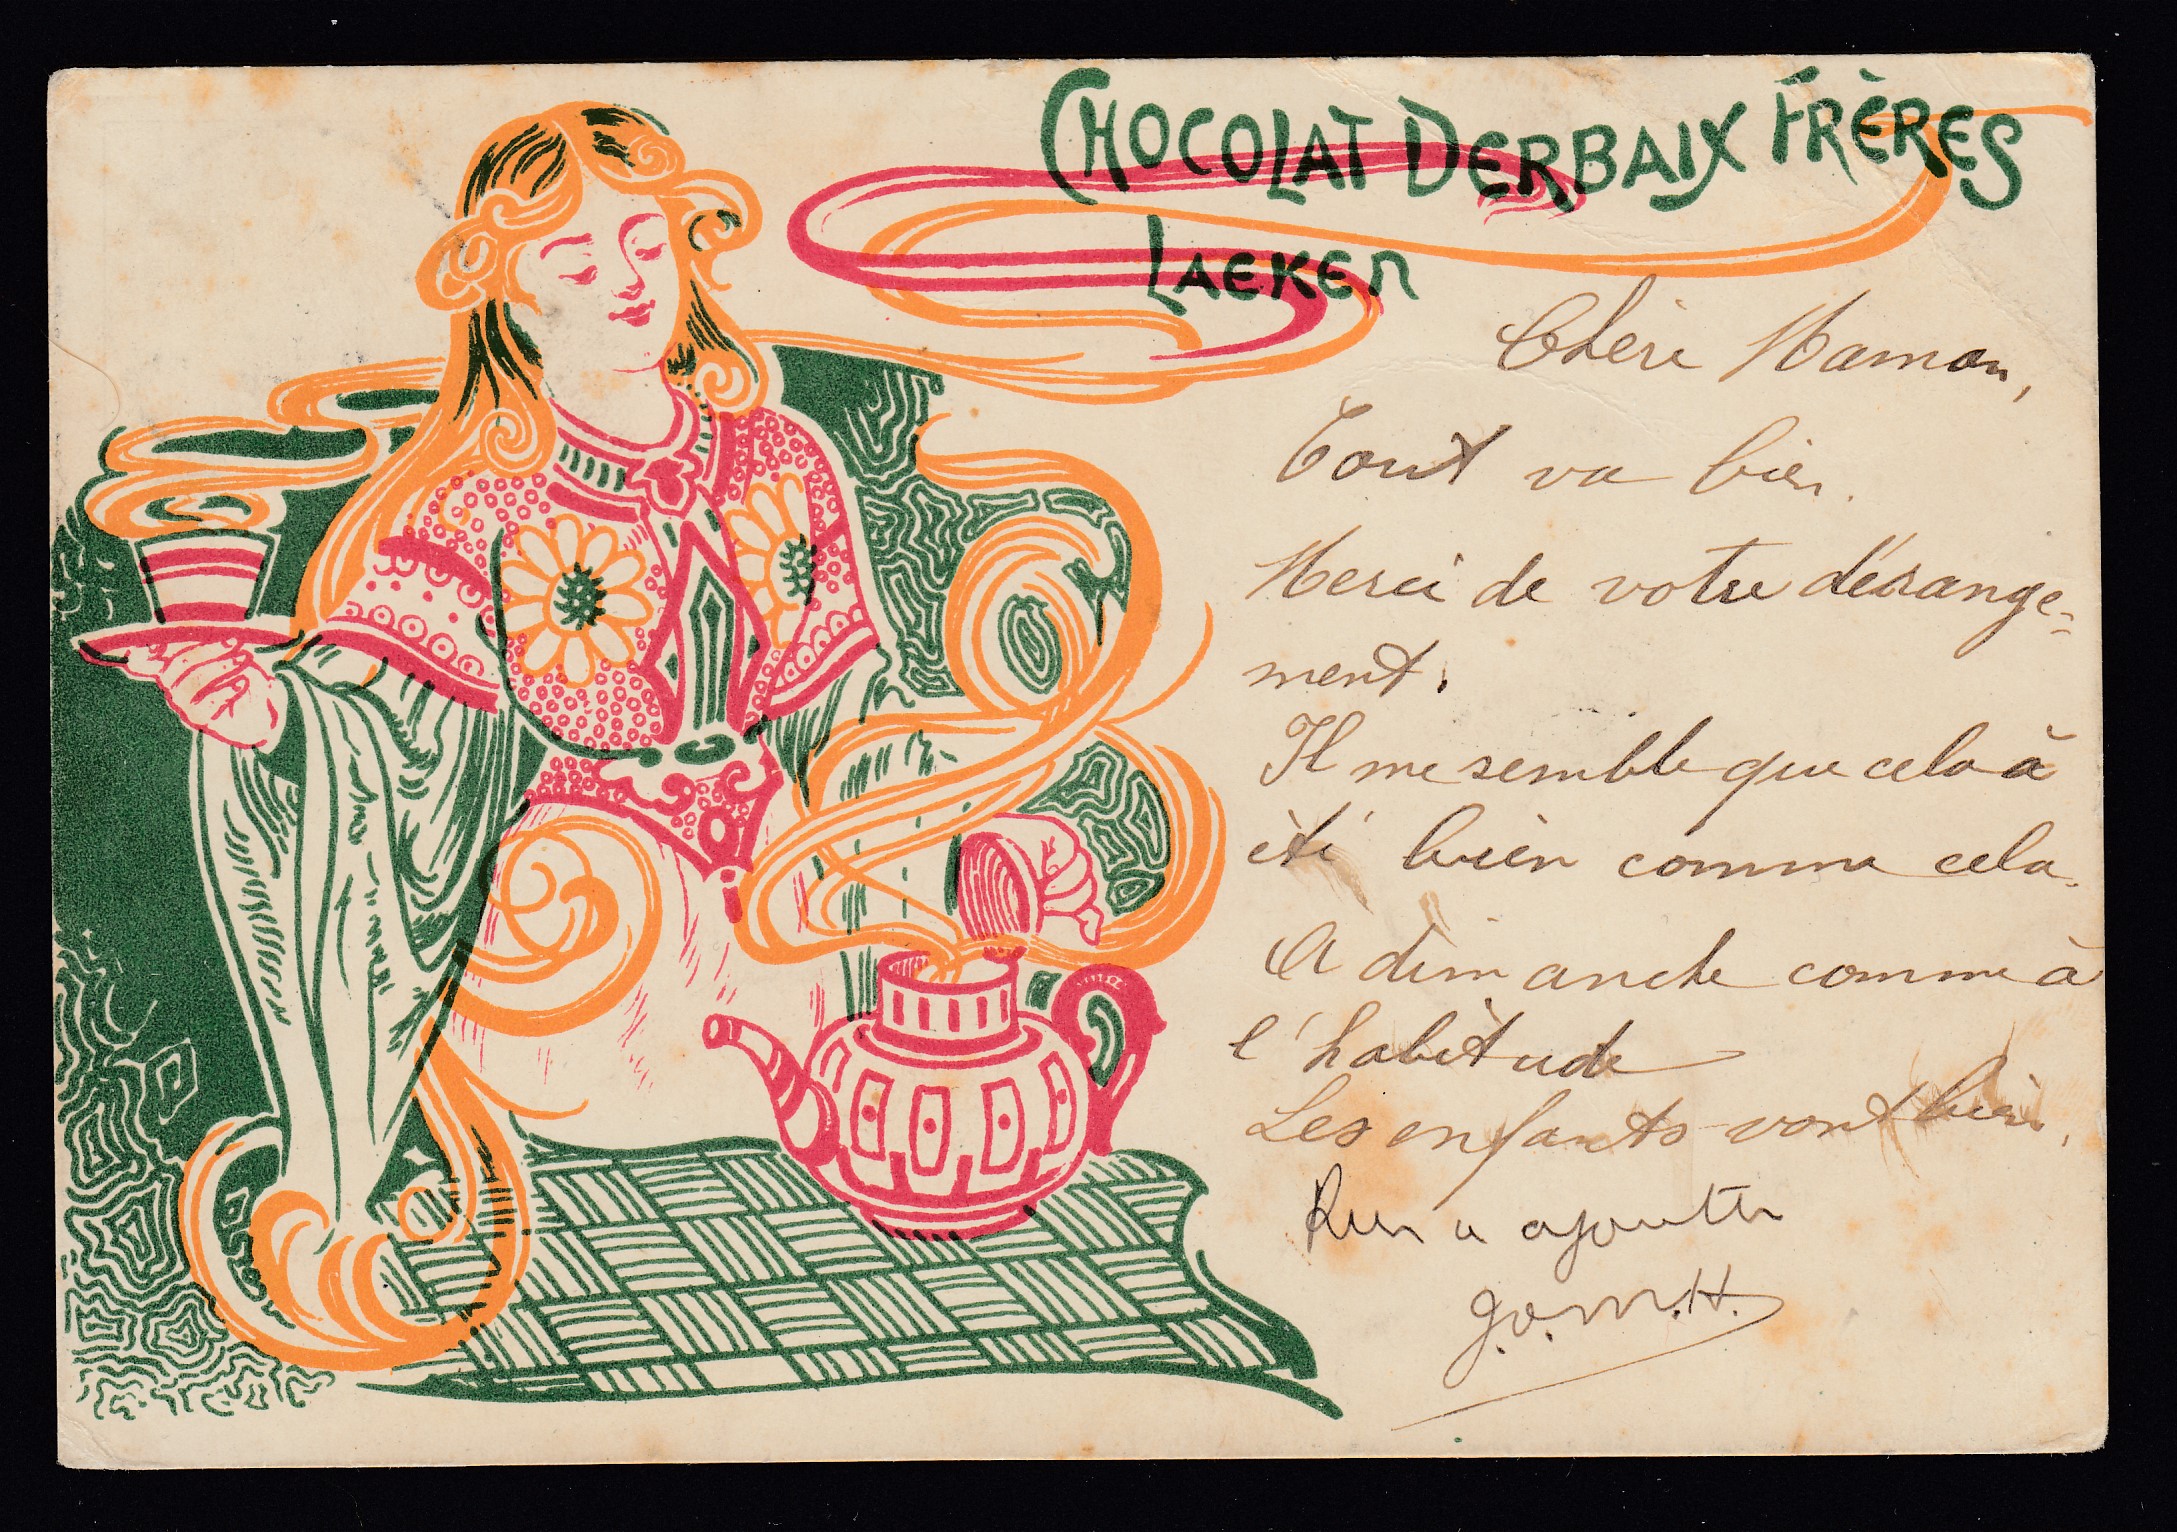 CHOCOLAT DERBAIX FRÈRES
LAEKEN
Chère Maman,
Tout va bien.
Merci de votre dérange-
ment.
Il me semble que cela à
été bien comme cela.
A dimanche comme à
l'habitude
Les enfants vont bien.
Rien a ajouter
J.O.M.H.